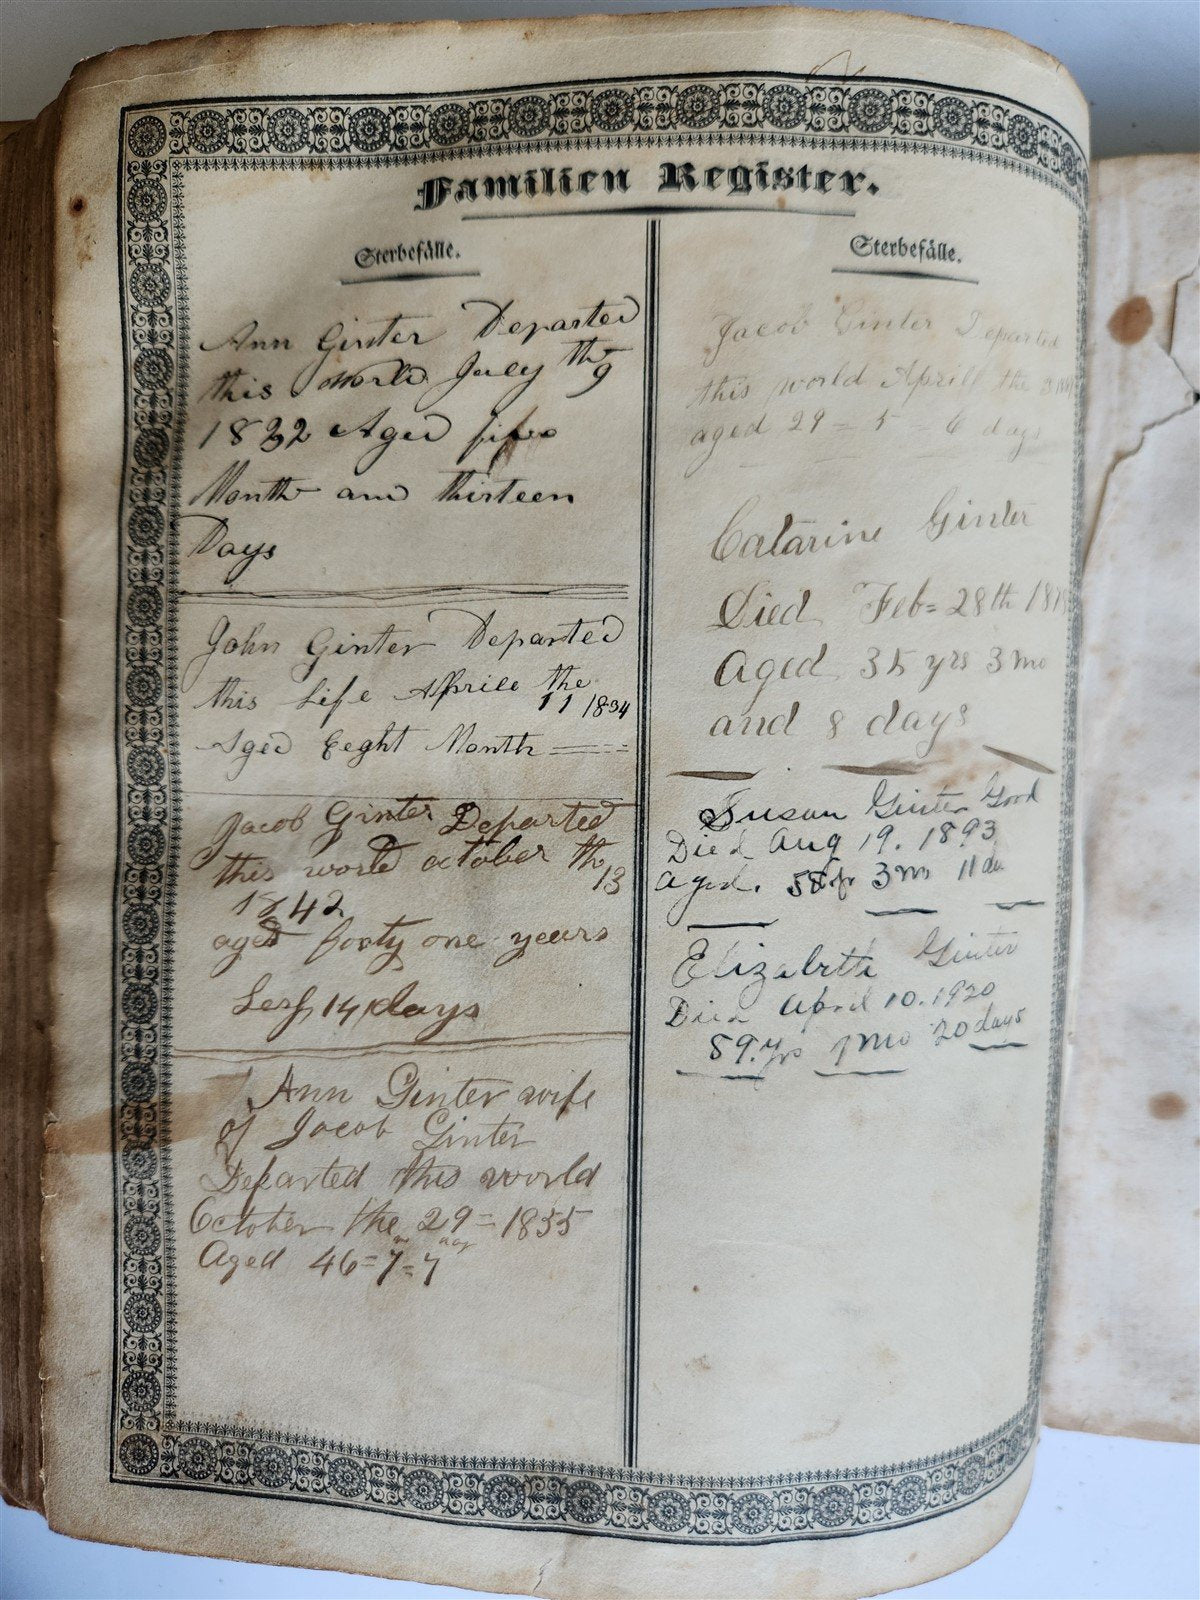 Familien Register.
Sterbefälle.
Ann Ginter Departed
this world July the 9
1832 Aged five
Month and thirteen
Days
John Ginter Departed
this Life Aprile the
11 1834
Aged Eeght Month
Jacob Ginter Departed
this world october th
13
1842
aged forty one years
Lesf 14 days
Ann Ginter wife
of Jacob Ginter
Departed this world
October the 29 = 1855
Aged 46 = 7 = 7
Sterbefälle.
Jacob Ginter Departed
this world Aprill the 3
aged 29 = 5 = 6 days
Catarine Ginter
Died Feb = 28th
Aged 35 yrs 3 mo
and 8 days
Susan Ginter Good
Died Aug 19. 1893
aged. 58 3 m 11 da
Elizabeth Ginter
Died April 10. 1920
89. yrs 1 Mo 20 days